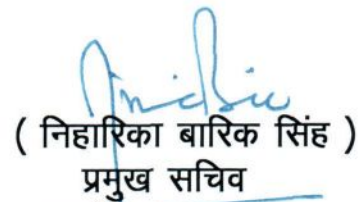 ( निहारिका बारिक सिंह )
प्रमुख सचिव